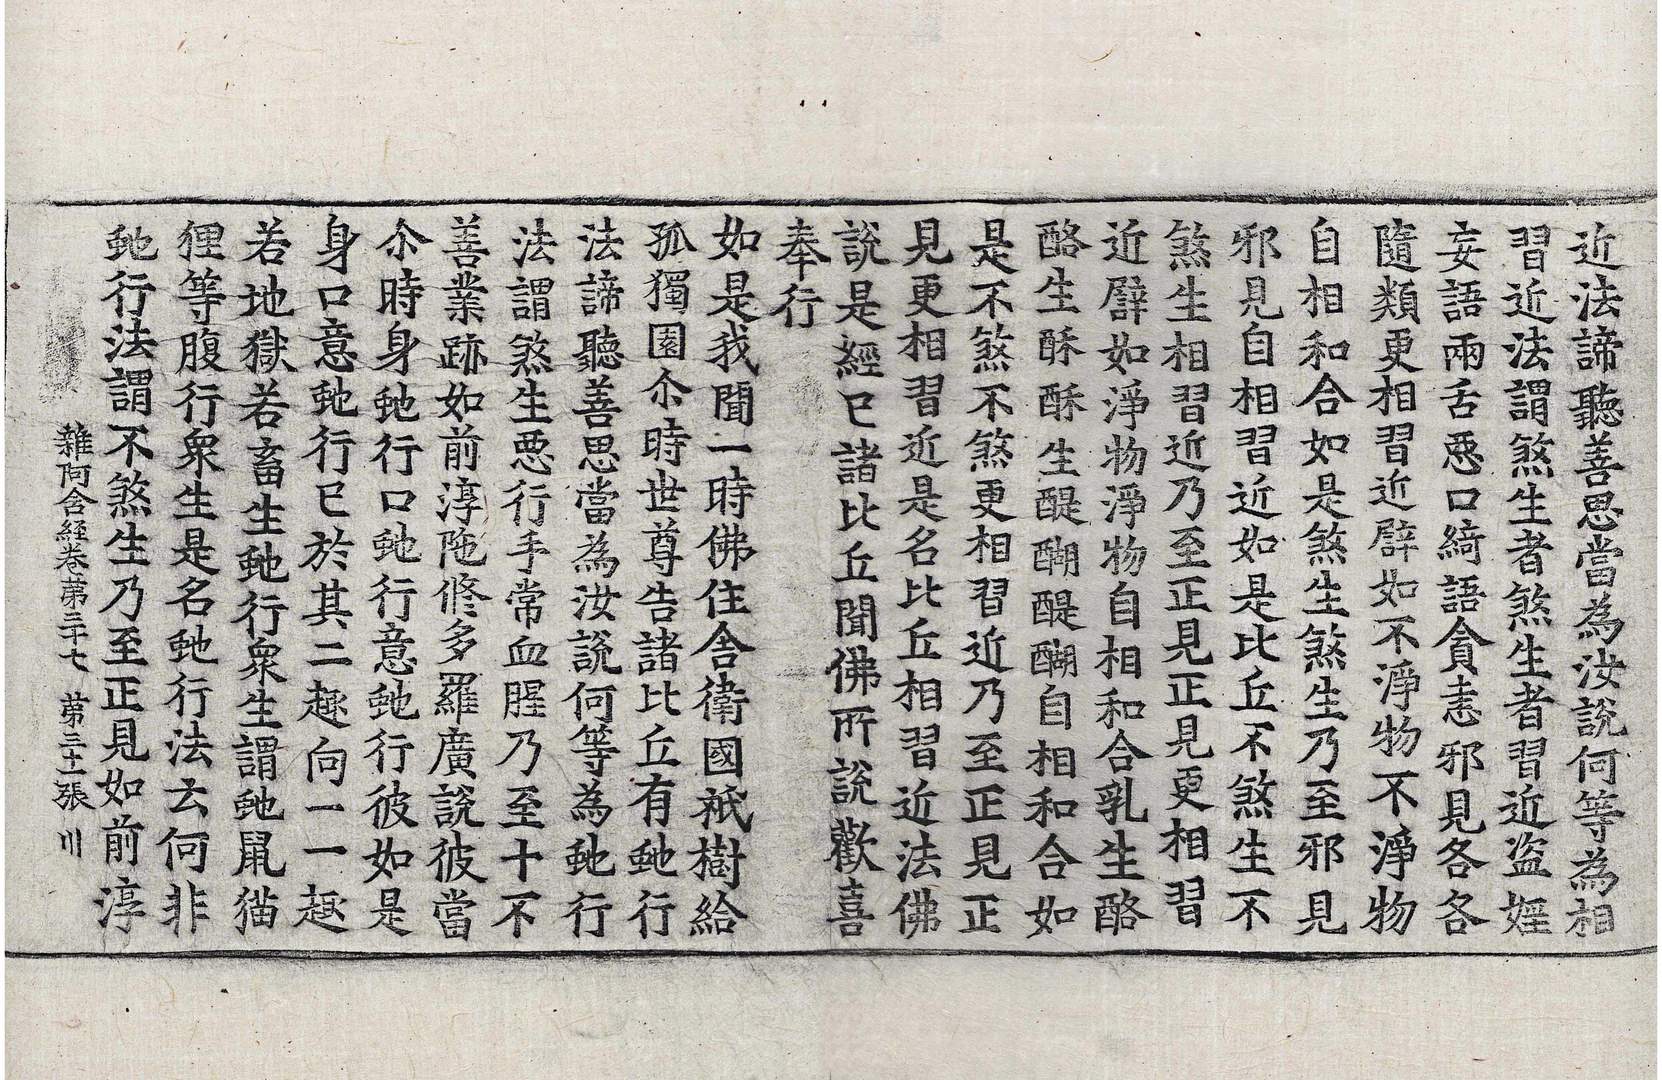 近法諦聽善思當為汝說何等為相
習近法謂煞生者煞生者習近盜婬
妄語兩舌惡口綺語貪恚邪見各各
隨類更相習近譬如不淨物不淨物
自相和合如是煞生煞生乃至邪見
邪見自相習近如是比丘不煞生不
煞生相習近乃至正見正見更相習
近譬如淨物淨物自相和合乳生酪
酪生酥酥生醍醐醍醐自相和合如
是不煞不煞更相習近乃至正見正
見更相習近是名比丘相習近法佛
說是經已諸比丘聞佛所說歡喜
奉行
如是我聞一時佛住舍衛國祇樹給
孤獨園尒時世尊告諸比丘有虵行
法諦聽善思當為汝說何等為虵行
法謂煞生惡行手常血腥乃至十不
善業跡如前淳陁修多羅廣說彼當
尒時身虵行口虵行意虵行彼如是
身口意虵行已於其二趣向一一趣
若地獄若畜生虵行衆生謂虵鼠猫
狸等腹行衆生是名虵行法云何非
虵行法謂不煞生乃至正見如前淳
雜阿含経卷苐三十七　苐三十一張　川